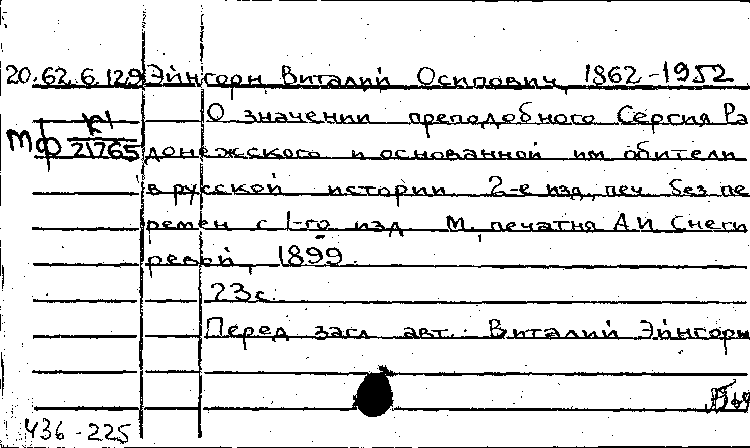 20.62.6.129 Эйнгорн, Виталий Осипович, 1862-1952
О значении преподобного Сергия Ра
МФ К1/21765 донежского и основанной им обители
в русской истории. 2-е изд., печ. без пе
ремен с 1-го изд. М., печатня А.И. Снеги
ревой, 1899.
23с.
Перед загл. авт.: Виталий Эйнгорн
436-225